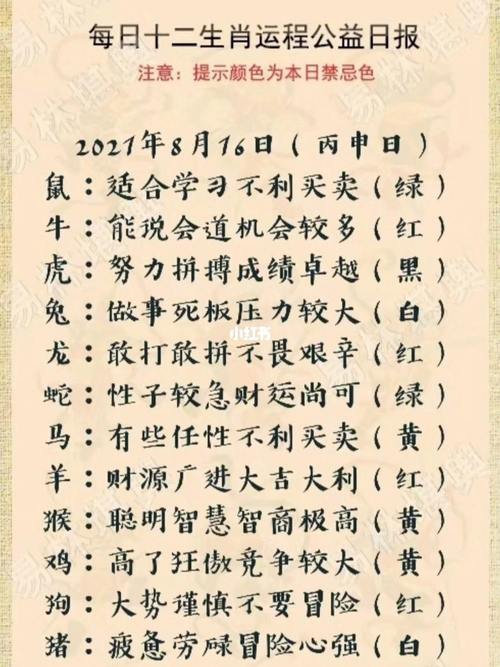 每日十二生肖运程公益日报
注意：提示颜色为本日禁忌色
2021年8月16日（丙申日）
鼠：适合学习不利买卖（绿）
牛：能说会道机会较多（红）
虎：努力拼搏成绩卓越（黑）
兔：做事死板压力较大（白）
小红书
龙：敢打敢拼不畏艰辛（红）
蛇：性子较急财运尚可（绿）
马：有些任性不利买卖（黄）
羊：财源广进大吉大利（红）
猴：聪明智慧智商极高（黄）
鸡：高了狂傲竞争较大（黄）
狗：大势谨慎不要冒险（红）
猪：疲惫劳碌冒险心强（白）